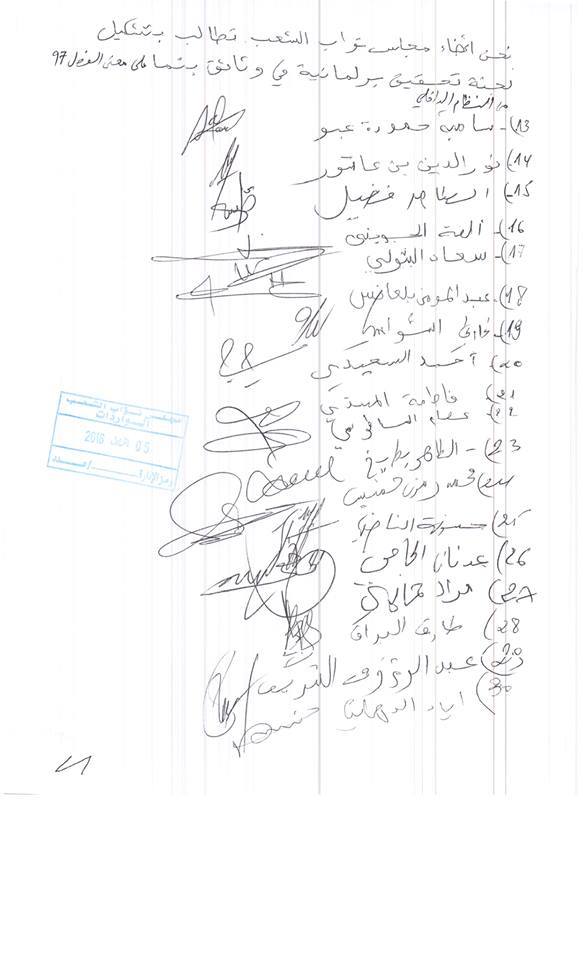 نحن أعضاء مجلس نواب الشعب نطالب بتشكيل
لجنة تحقيق برلمانية في وثائق بنما على معنى الفصل 97
من النظام الداخلي
13)- سامية حمودة عبو
14)- نور الدين بن عاشور
15)- الطاهر فضيل
16)- ألفة الجويني
17)- سعاد
18)- عبد المومن بلعانس
19)- غازي الشواشي
20)- أحمد السعيدي
21)- فاطمة المسدي
22)- عصام
23)- الطاهر بطيخ
24) محمد رمزي خميس
25)
26) عدنان الحاجي
27) مراد
28) طارق البراق
29) عبد الرؤوف الشريف
30) اياد الدهماني
مجلس نواب الشعب
الواردات
05 2016
رمز الإدارة / عدد